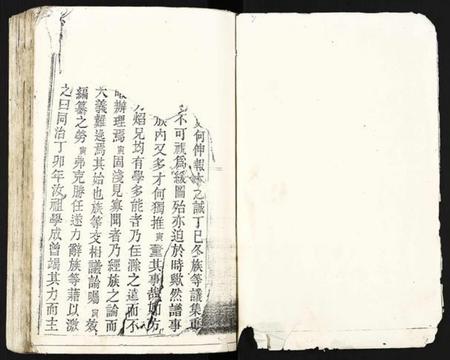 何伸報本之誠丁巳冬族等議集重
不可視為緩圖殆亦迫於時歟然譜事
族內又多才何獨推寅董其事
焰兄均有學多能者乃任滌之遠而不
辦理焉寅固淺見寡聞者乃經族之論而
大義難逸焉其始也族等交相議論囑寅效
編纂之勞寅弗克勝任遂力辭族等藉以激
之曰同治丁卯年汝祖學成曾竭其力而主